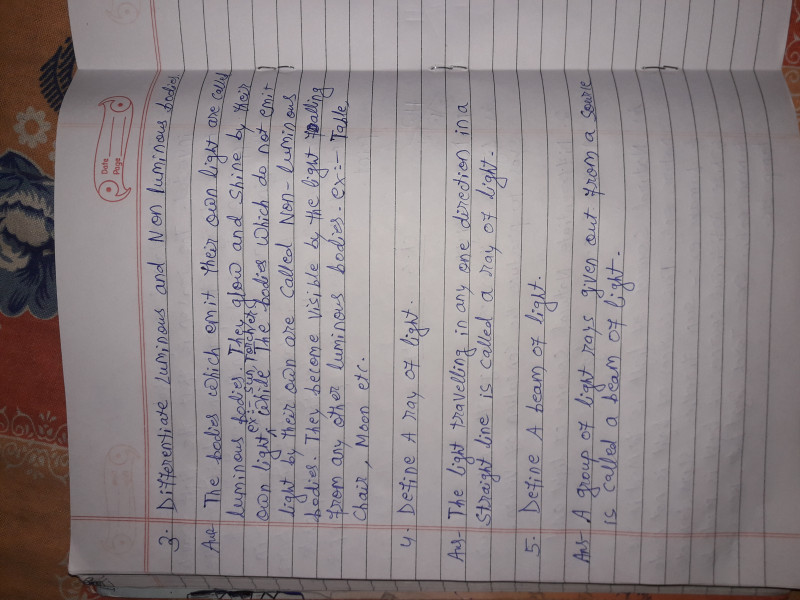 Date
Page
3. Differentiate Luminous and Non luminous bodies
Ans The bodies which emit their own light are called
luminous bodies. They glow and shine by their
ex:- sun, Torch etc
own light, while The bodies which do not emit
light by their own are called Non-luminous
bodies. They become visible by the light falling
from any other luminous bodies. ex:- Table,
Chair, Moon etc.
4. Define A ray of light.
Ans- The light travelling in any one direction in a
Straight line is called a ray of light.
5. Define A beam of light.
Ans- A group of light rays given out from a source
is called a beam of light.